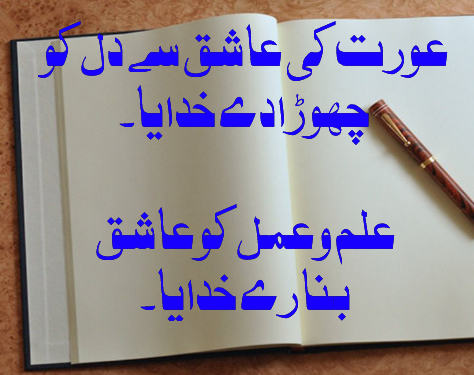 عورت کی عاشق سے دل کو
چھوڑادے خدایا۔
علم وعمل کو عاشق
بنارے خدایا۔